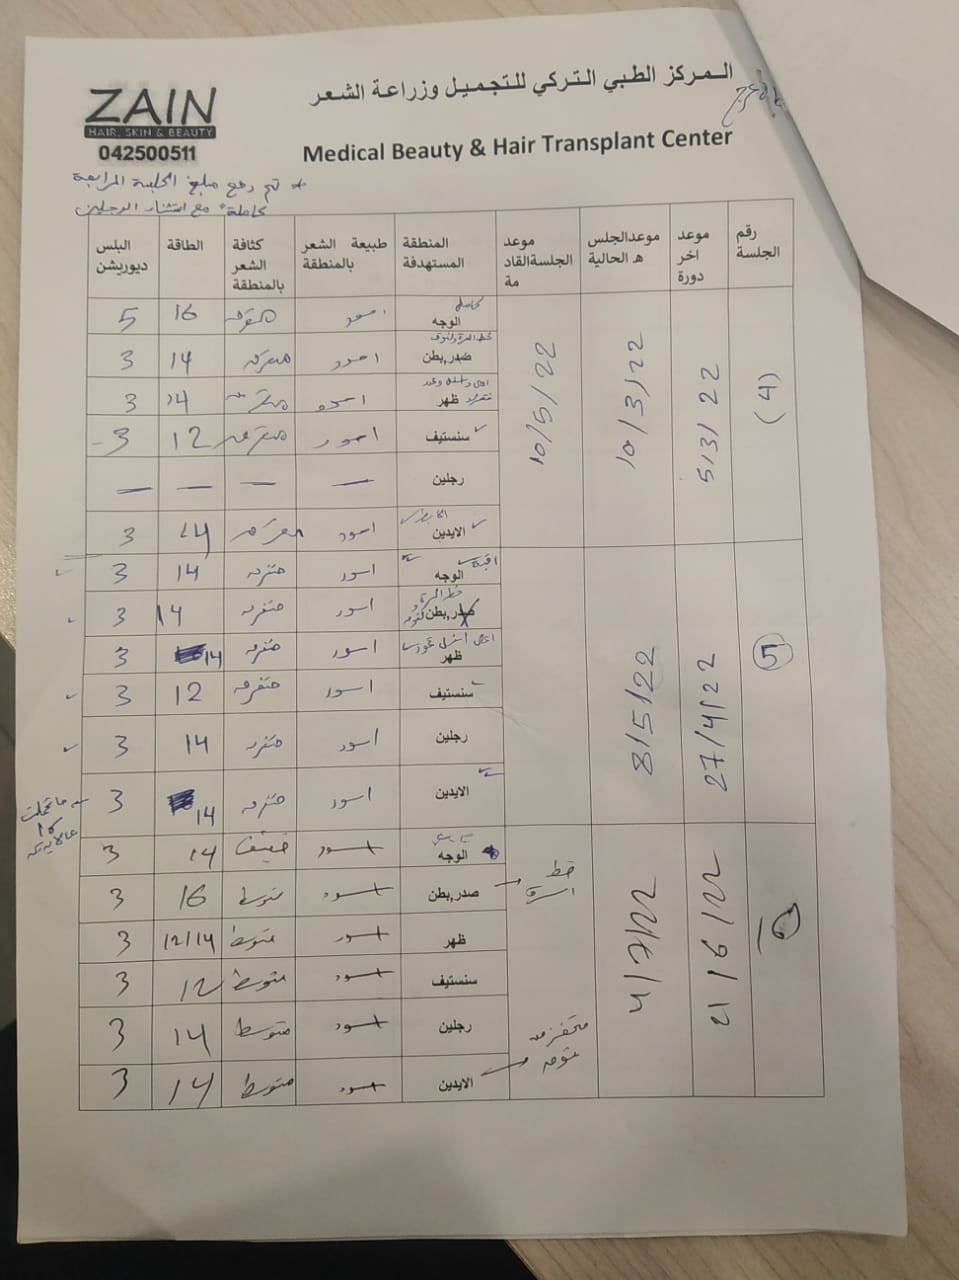 المركز الطبي التركي للتجميل وزراعة الشعر
ZAIN
HAIR, SKIN & BEAUTY
042500511
Medical Beauty & Hair Transplant Center
* تم دفع مبلغ الجلسة الرابعة
كاملة مع استثناء الرجلين
رقم الجلسة | موعد اخر دورة | موعد الجلسه الحالية | موعد الجلسة القادمة | المنطقة المستهدفة | طبيعة الشعر بالمنطقة | كثافة الشعر بالمنطقة | الطاقة | البلس ديوريشن
(4) | 5/3/22 | 10/3/22 | 10/5/22
الوجه كامل | اسود | متفرقه | 16 | 5
صدر,بطن | اسود | متفرقه | 14 | 3
ظهر | اسود | متفرقه | 14 | 3
سنستيف | اسود | متفرقه | 12 | 3
رجلين | — | — | — | —
الايدين | اسود | متفرقه | 14 | 3
5 | 27/4/22 | 8/5/22
الوجه | اسود | متفرقه | 14 | 3
صدر,بطن | اسود | متفرقه | 14 | 3
ظهر | اسود | متفرقه | 14 | 3
سنستيف | اسود | متفرقه | 12 | 3
رجلين | اسود | متفرقه | 14 | 3
الايدين | اسود | متفرقه | 14 | 3
ما تحملت
16
21/6/22 | 4/7/22
الوجه | اسود | خفيف | 14 | 3
خط السرة | صدر,بطن | اسود | متوسط | 16 | 3
ظهر | اسود | متوسط | 12/14 | 3
سنستيف | اسود | متوسط | 12 | 3
رجلين | اسود | متوسط | 14 | 3
الايدين | اسود | متوسط | 14 | 3